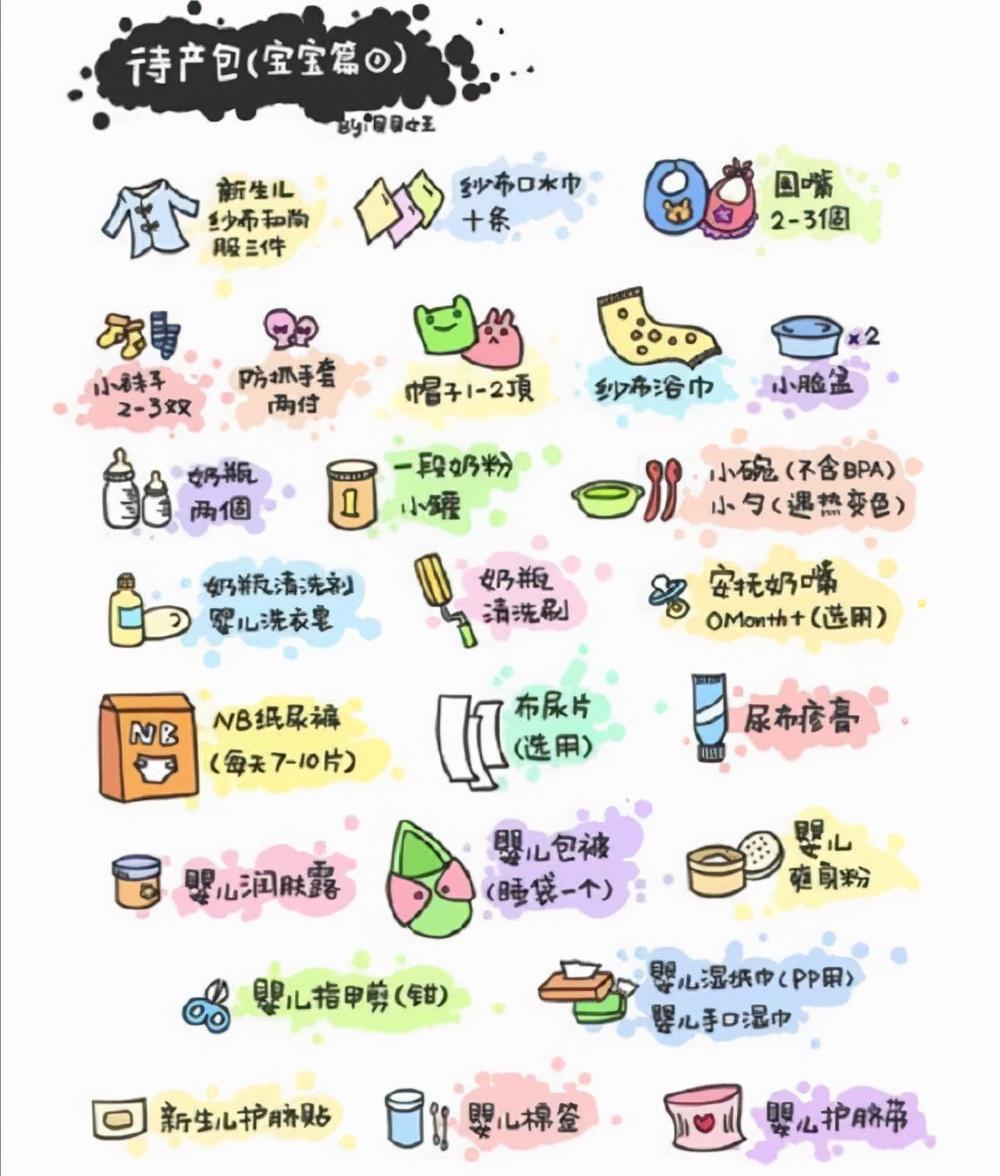 待产包(宝宝篇①)
By:贝贝女王
新生儿
纱布和尚
服三件
纱布口水巾
十条
围嘴
2-3個
小袜子
2-3双
防抓手套
两付
帽子1-2頂
纱布浴巾
x2
小脸盆
奶瓶
两個
1
一段奶粉
小罐
小碗(不含BPA)
小勺(遇热变色)
奶瓶清洗剂
婴儿洗衣皂
奶瓶
清洗刷
安抚奶嘴
0Month+(选用)
NB
NB纸尿裤
(每天7-10片)
布尿片
(选用)
尿布疹膏
婴儿润肤露
婴儿包被
(睡袋一个)
婴儿
爽身粉
婴儿指甲剪(钳)
婴儿湿纸巾(PP用)
婴儿手口湿巾
新生儿护脐贴
婴儿棉签
婴儿护脐带